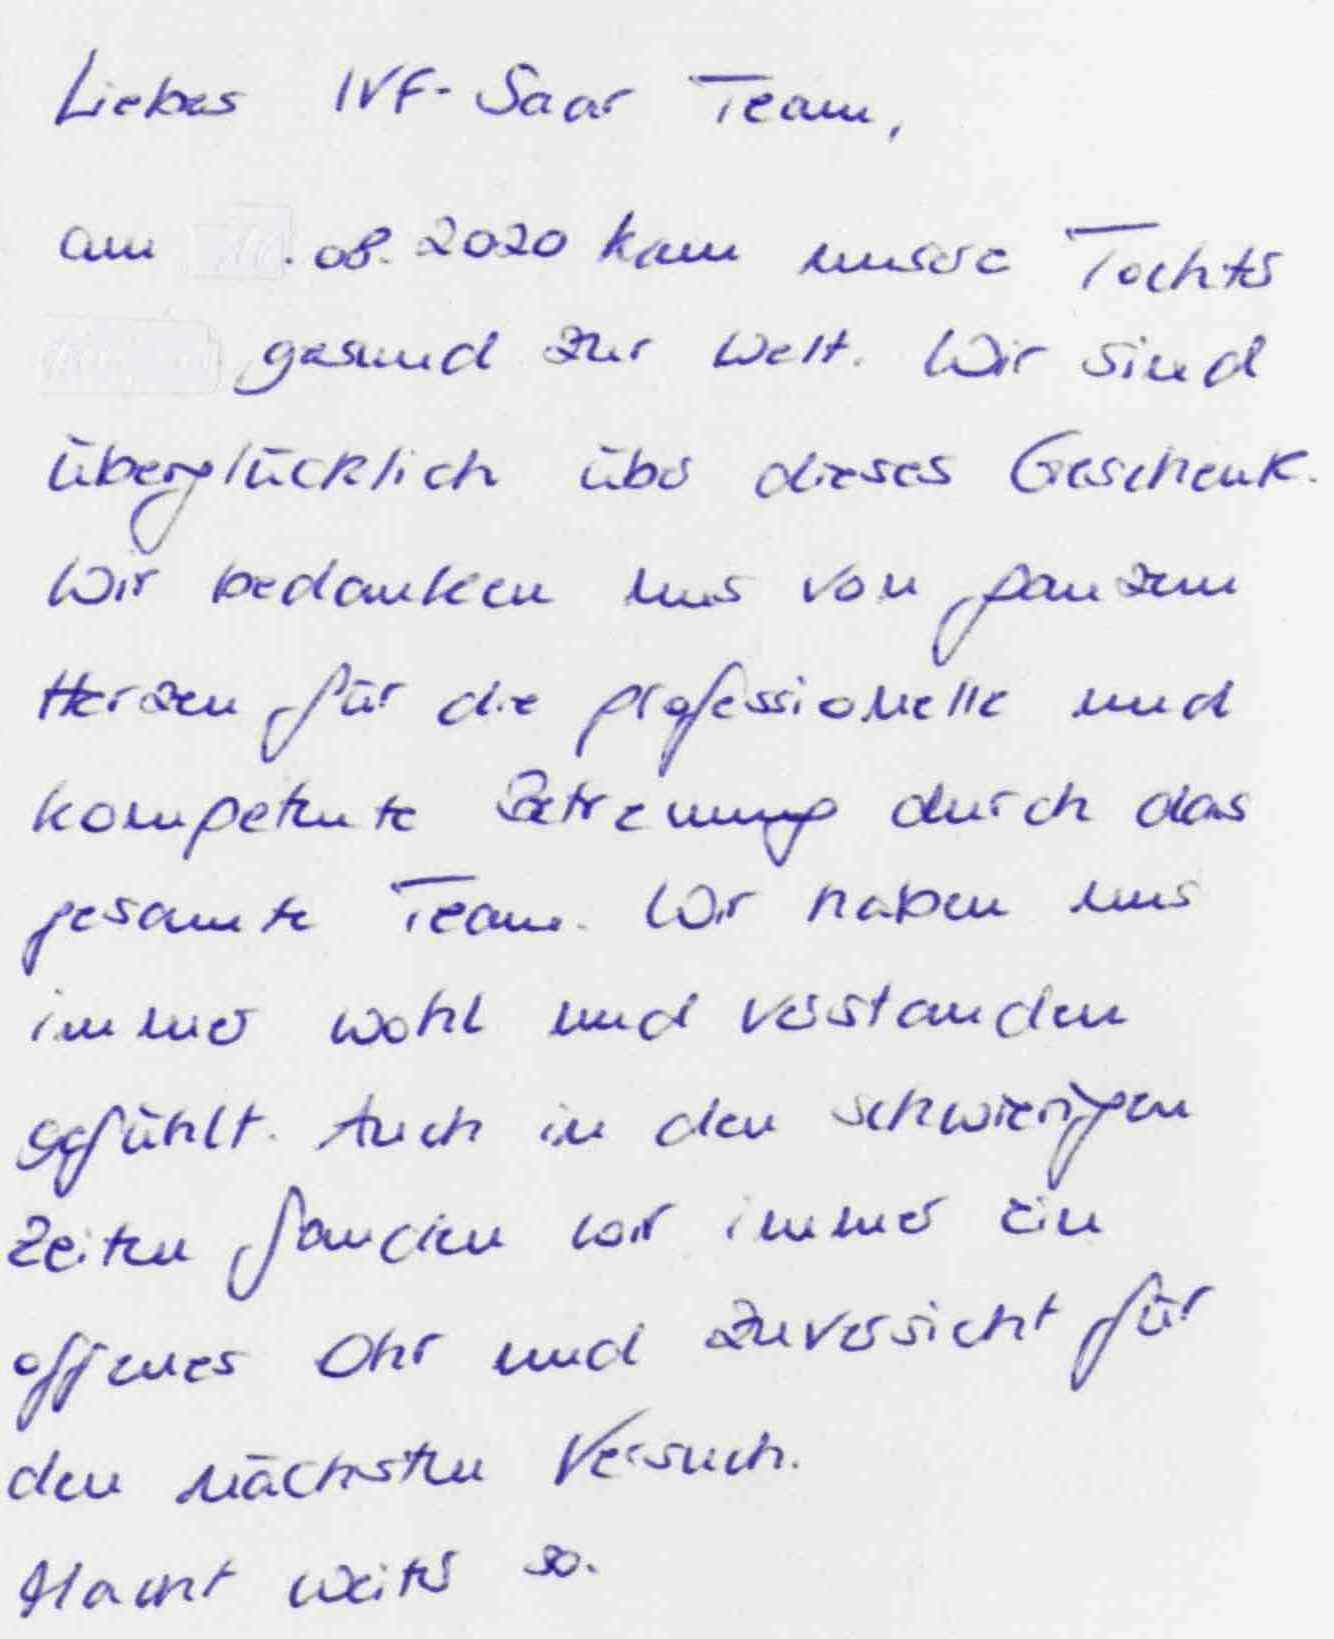 Liebes IVF-Saar Team,
am .08.2020 kam unsere Tochter
gesund zur Welt. Wir sind
überglücklich über dieses Geschenk.
Wir bedanken uns von ganzem
Herzen für die professionelle und
kompetente Betreuung durch das
gesamte Team. Wir haben uns
immer wohl und verstanden
gefühlt. Auch in den schwierigen
Zeiten fanden wir immer ein
offenes Ohr und Zuversicht für
den nächsten Versuch.
Macht weiter so.